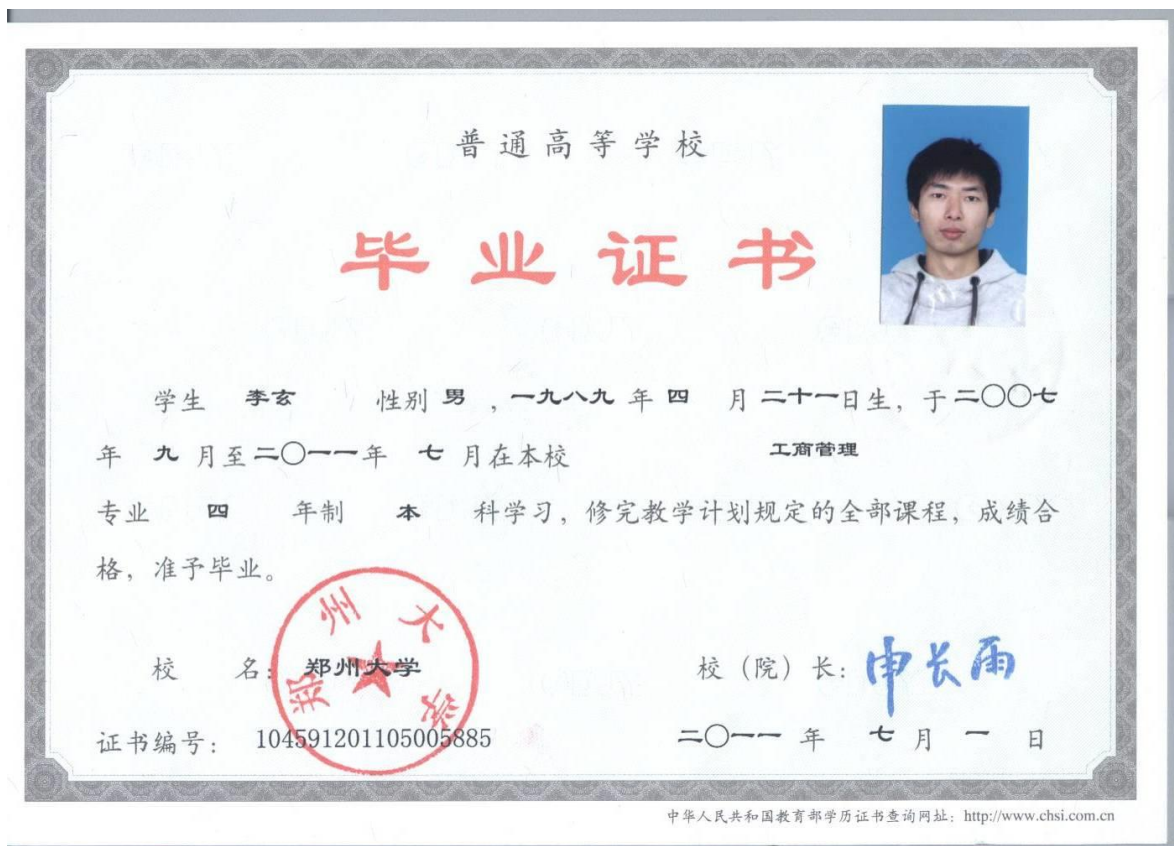 普通高等学校
毕业证书
学生 李玄 性别 男 ，一九八九 年 四 月 二十一日生，于 二〇〇七
年 九 月至 二〇一一年 七 月在本校 工商管理
专业 四 年制 本 科学习，修完教学计划规定的全部课程，成绩合
格，准予毕业。
郑州大学
校 名：郑州大学 校（院）长：申长雨
证书编号： 104591201105005885 二〇一一 年 七 月 一 日
中华人民共和国教育部学历证书查询网址：http://www.chsi.com.cn